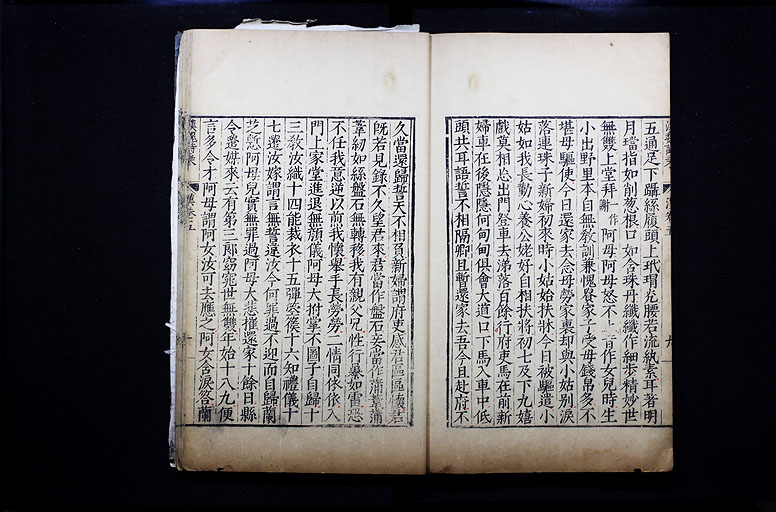 五通足下躡絲履頭上玳瑁光腰若流紈素耳著明
月璫指如削葱根口如含珠丹纖纖作細步精妙世
無雙上堂拜謝作阿母阿母怒不上昔作女兒時生
小出野里本自無教訓兼愧貴家子受母錢帛多不
堪母驅使今日還家去念母勞家裏却與小姑别淚
落連珠子新婦初來時小姑始扶牀今日被驅遣小
姑如我長勤心養公姥好自相扶將初七及下九嬉
戲莫相忘出門登車去涕落百餘行府吏馬在前新
婦車在後隱隱何甸甸俱會大道口下馬入車中低
頭共耳語誓不相隔卿且暫還家去吾今且赴府不
久當還歸誓天不相負新婦謂府吏感君區區懷君
旣若見錄不久望君來君當作盤石妾當作蒲葦蒲
葦紉如絲盤石無轉移我有親父兄性行暴如雷恐
不任我意逆以煎我懷舉手長勞勞二情同依依入
門上家堂進退無顏儀阿母大拊掌不圖子自歸十
三教汝織十四能裁衣十五彈箜篌十六知禮儀十
七遣汝嫁謂言無誓違汝今何罪過不迎而自歸蘭
芝慙阿母兒實無罪過阿母大悲摧還家十餘日縣
令遣媒來云有第三郎窈窕世無雙年始十八九便
言多令才阿母謂阿女汝可去應之阿女含淚答蘭